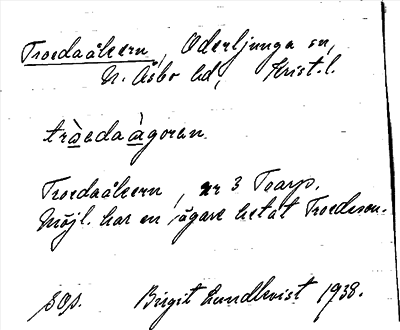 Troedaåkern, Oderljunga sn,
N. Åsbo hd, Krist. l.
Troedaåkern, nr 3 Tearp.
Möjl. har en ägare hetat Troedsson.
Birgit Lundkvist 1938.